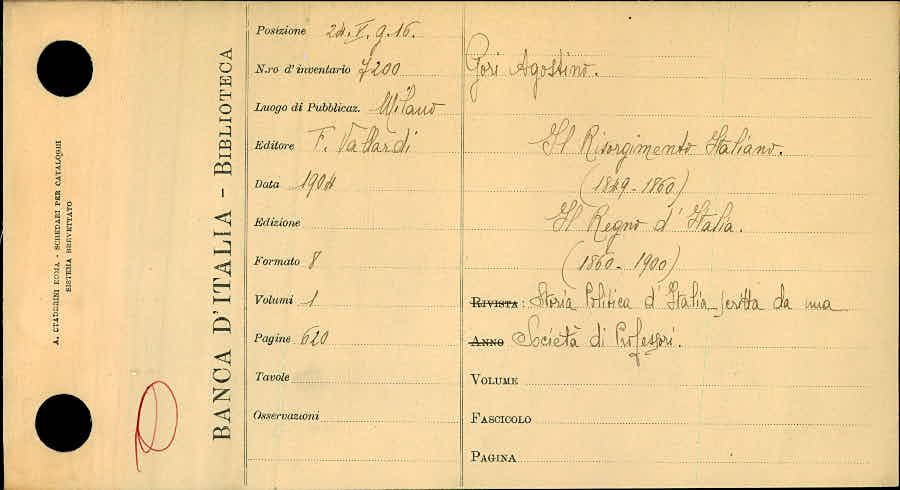 A. STADERINI ROMA - SCHEDARI PER CATALOGHI
SISTEMA BREVETTATO
BANCA D'ITALIA - BIBLIOTECA
Posizione 24. V. g. 16.
N.ro d'inventario 7200
Luogo di Pubblicaz. Milano
Editore F. Vallardi
Data 1904
Edizione
Formato 8
Volumi 1
Pagine 620
Tavole
Osservazioni
Gori Agostino.
Il Risorgimento Italiano.
(1849-1860)
Il Regno d'Italia.
(1860-1900)
RIVISTA: Storia Politica d'Italia scritta da una
ANNO Società di Professori.
VOLUME
FASCICOLO
PAGINA